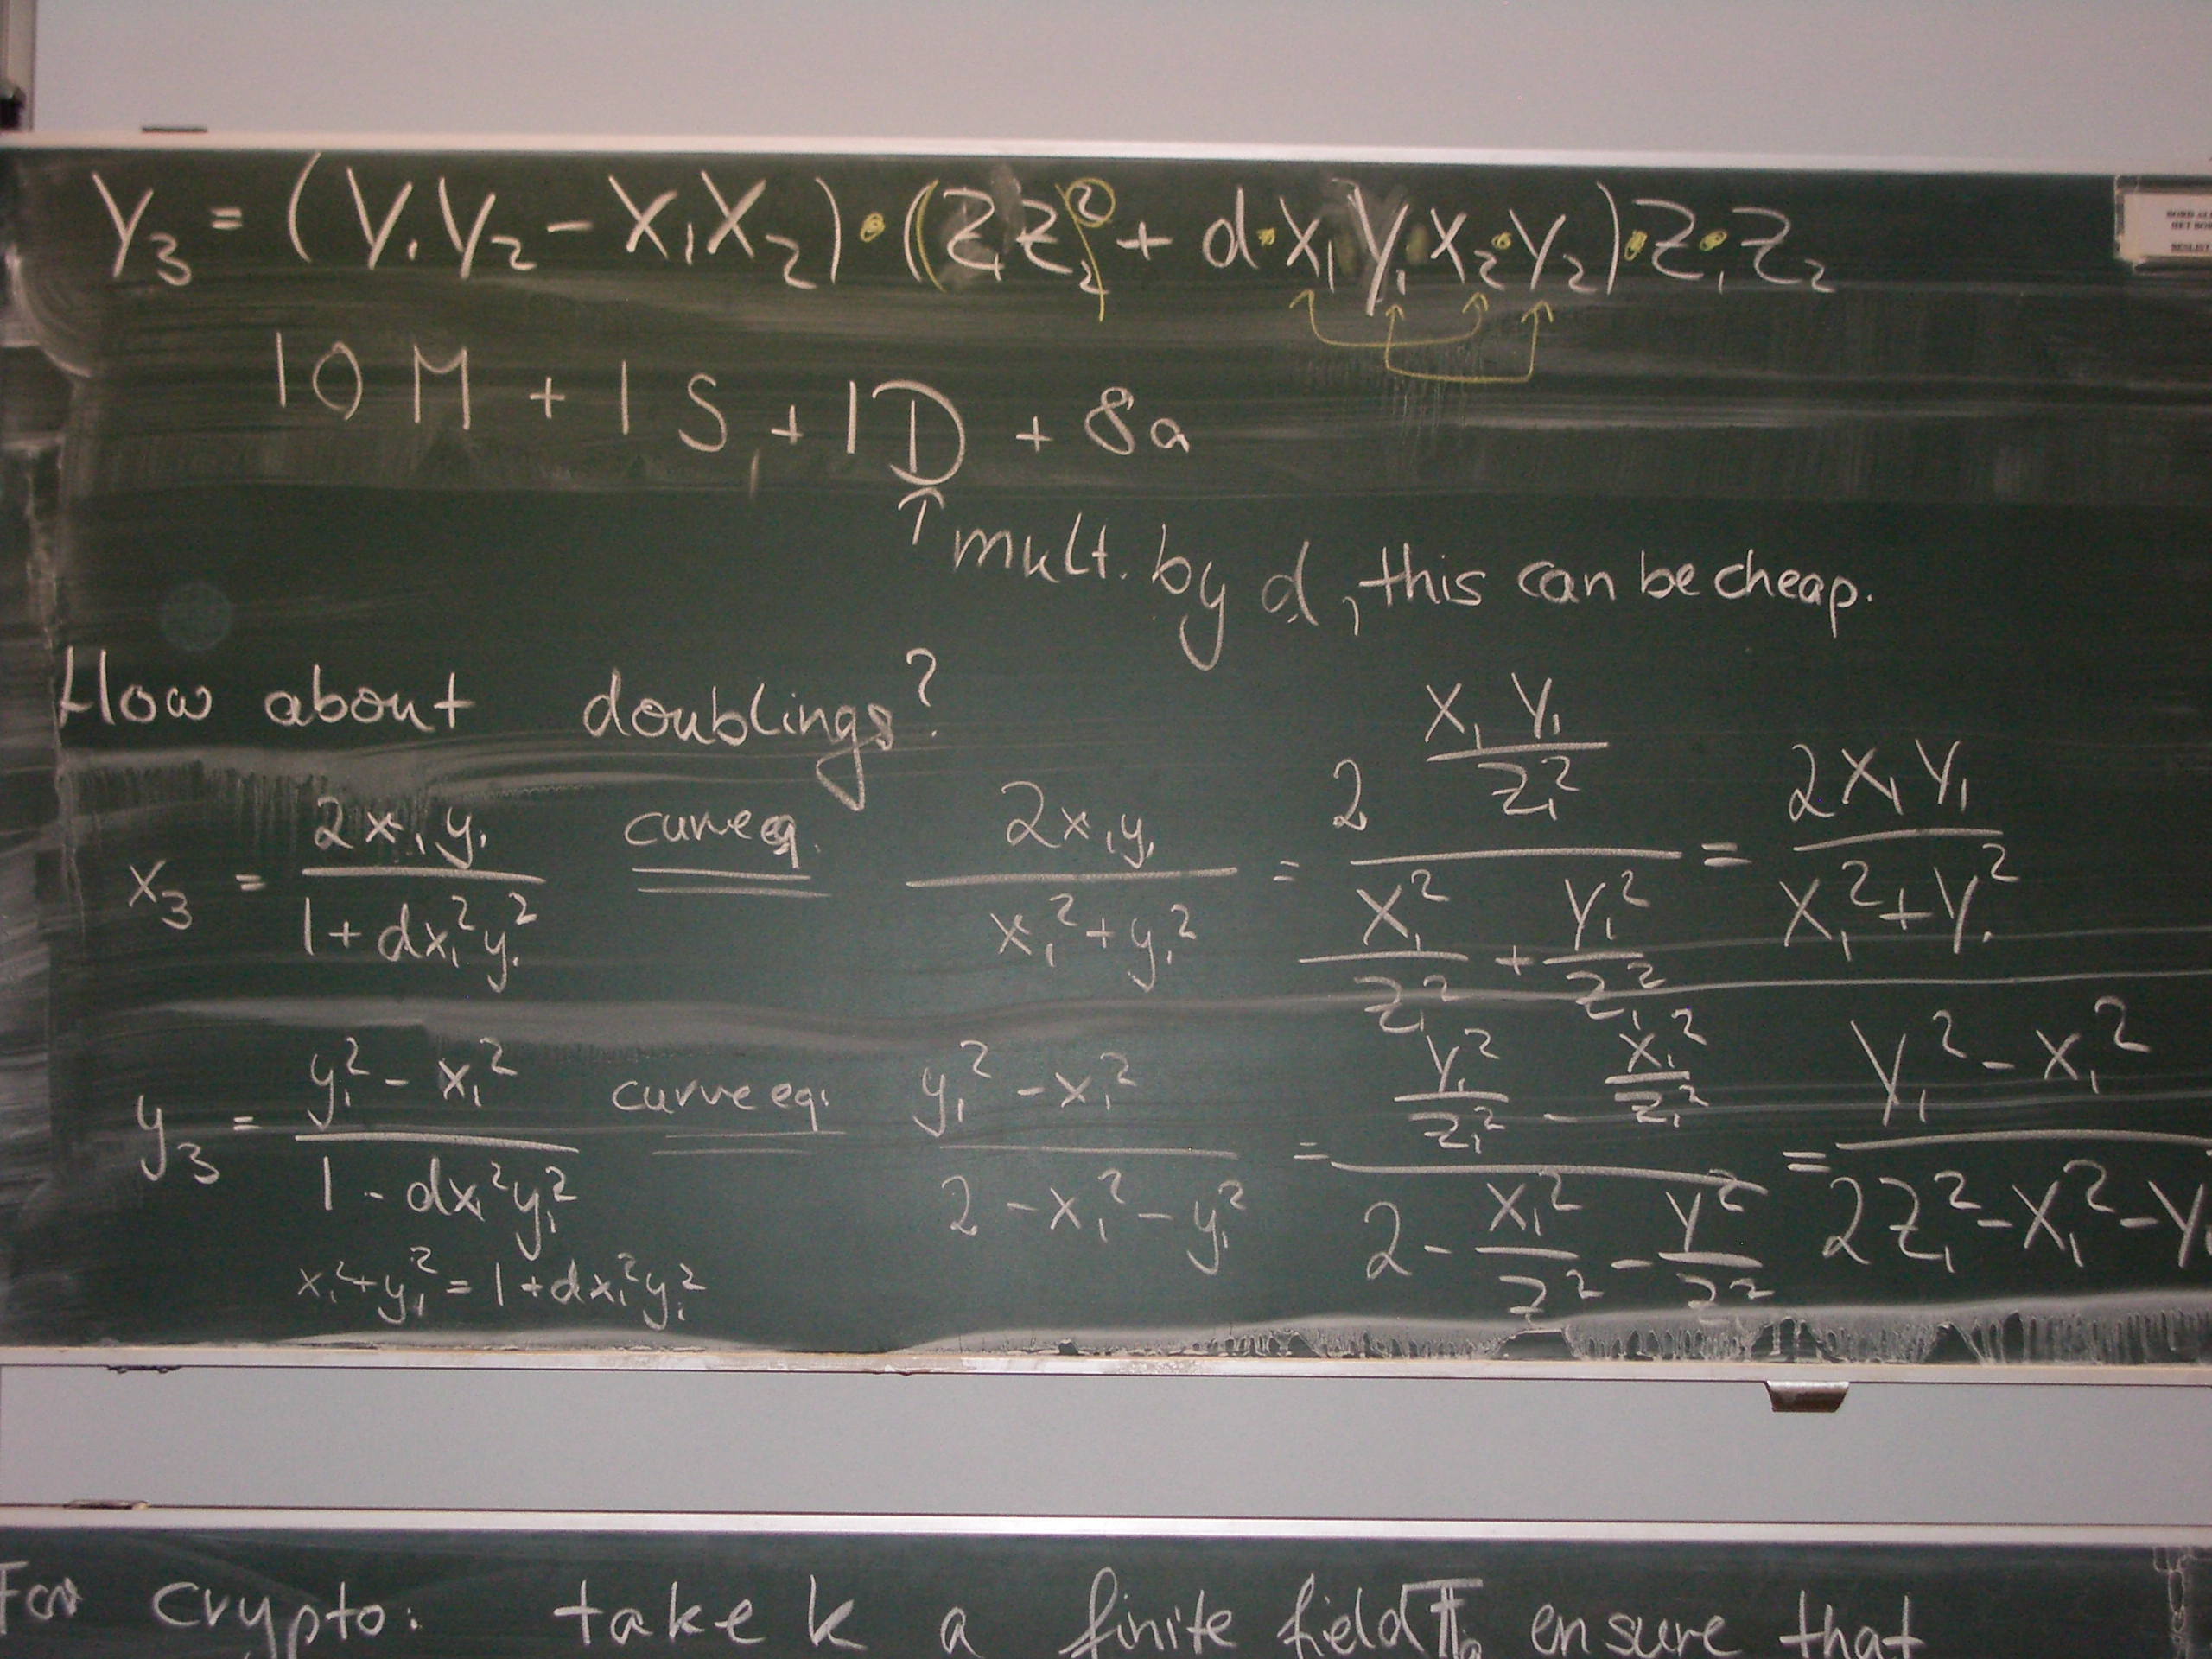 Y₃ = (Y₁Y₂ - X₁X₂)·(Z₁Z₂)² + d·X₁Y₁X₂·Y₂)·Z₁·Z₂
10M + 1S, + 1D + 8a
↑ mult. by d, this can be cheap.
How about doublings?
x₃ = 2x₁y₁ / (1+dx₁²y₁²) curve eq. = 2x₁y₁ / (x₁²+y₁²) = 2 (X₁Y₁/Z₁²) / (X₁²/Z₁² + Y₁²/Z₁²) = 2X₁Y₁ / (X₁²+Y₁²)
y₃ = (y₁² - x₁²) / (1-dx₁²y₁²) curve eq. = (y₁² - x₁²) / (2-x₁²-y₁²) = (Y₁²/Z₁² - X₁²/Z₁²) / (2 - X₁²/Z² - Y²/Z²) = (Y₁² - X₁²) / (2Z₁²-X₁²-Y
x₁²+y₁² = 1+dx₁²y₁²
For crypto: take k a finite field ensure that